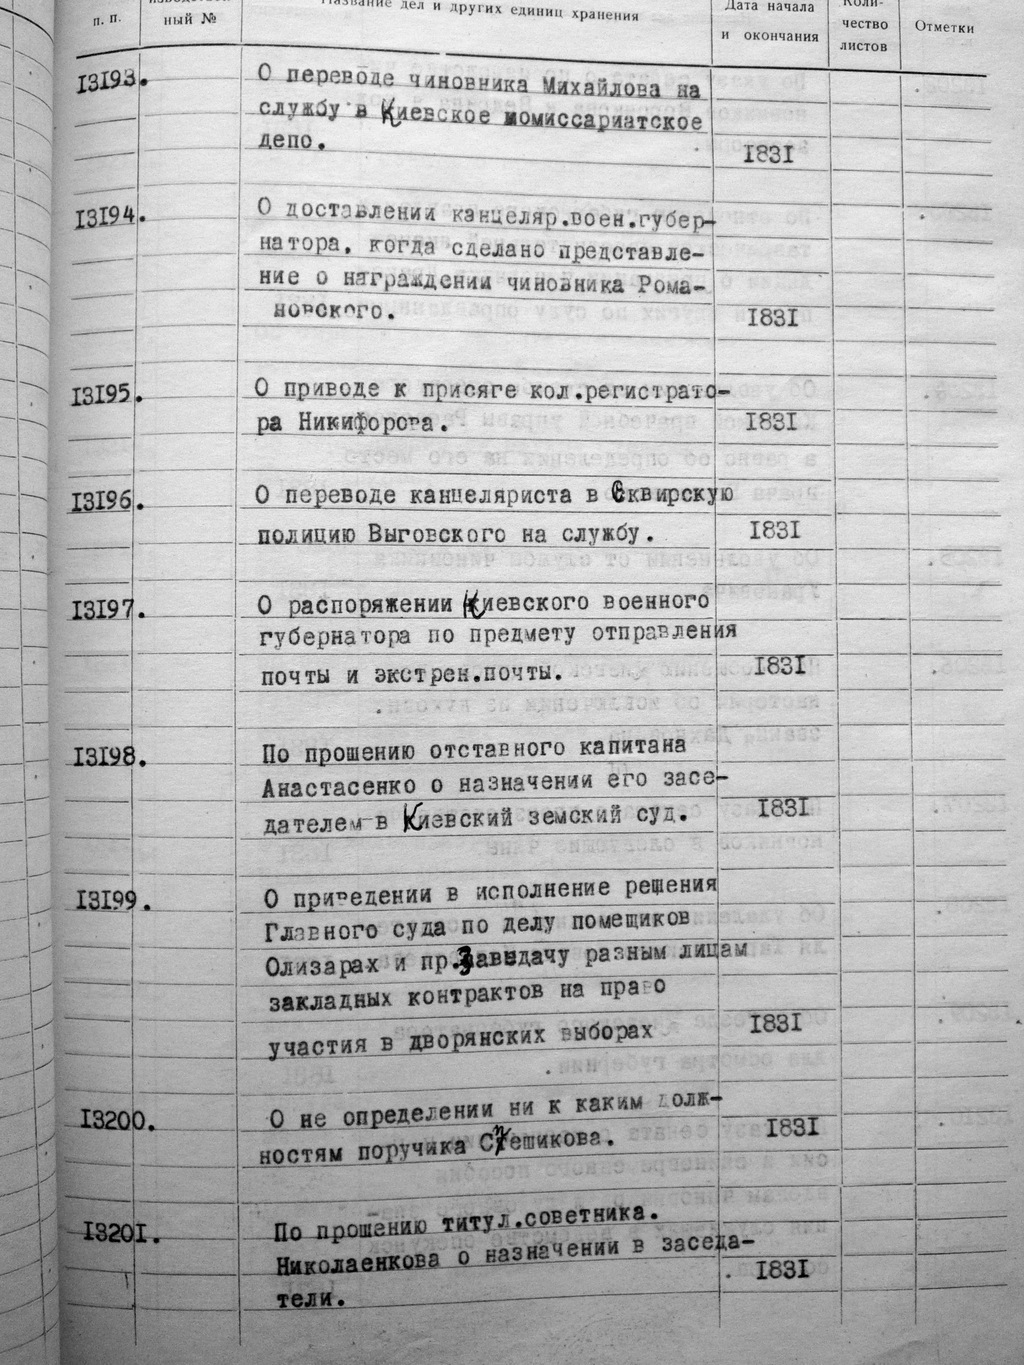 п. п.
ный №
Название дел и других единиц хранения
Дата начала
и окончания
Коли-
чество
листов
Отметки
13193.
О переводе чиновника Михайлова на
службу в Киевское комиссариатское
депо.
1831
13194.
О доставлении канцеляр.воен.губер-
натора, когда сделано представле-
ние о награждении чиновника Рома-
новского.
1831
13195.
О приводе к присяге кол.регистрато-
ра Никифорова.
1831
13196.
О переводе канцеляриста в Сквирскую
полицию Выговского на службу.
1831
13197.
О распоряжении Киевского военного
губернатора по предмету отправления
почты и экстрен.почты.
1831
13198.
По прошению отставного капитана
Анастасенко о назначении его засе-
дателем в Киевский земский суд.
1831
13199.
О приведении в исполнение решения
Главного суда по делу помещиков
Олизарах и пр. за выдачу разным лицам
закладных контрактов на право
участия в дворянских выборах
1831
13200.
О не определении ни к каким долж-
ностям поручика
1831
13201.
По прошению титул.советника.
Николаенкова о назначении в заседа-
тели.
1831